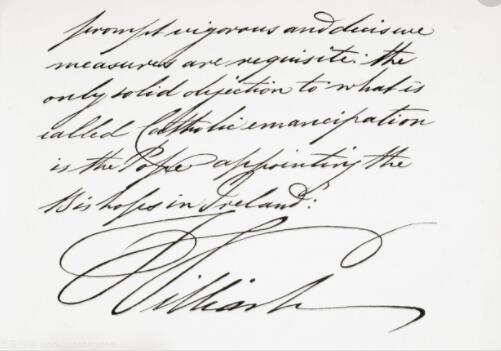 prompt vigorous and decisive
measures are requisite: the
only solid objection to what is
called Catholic emancipation
is the Pope appointing the
Bishops in Ireland:
William